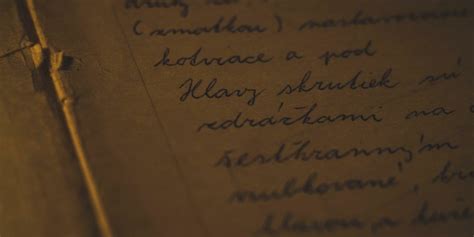 druhy
(zmatkou) nastavovacie
kotviace a pod
Hlavy skrutiek sú
zdrážkami na
šesthranným
vrubkované,
hlavou a